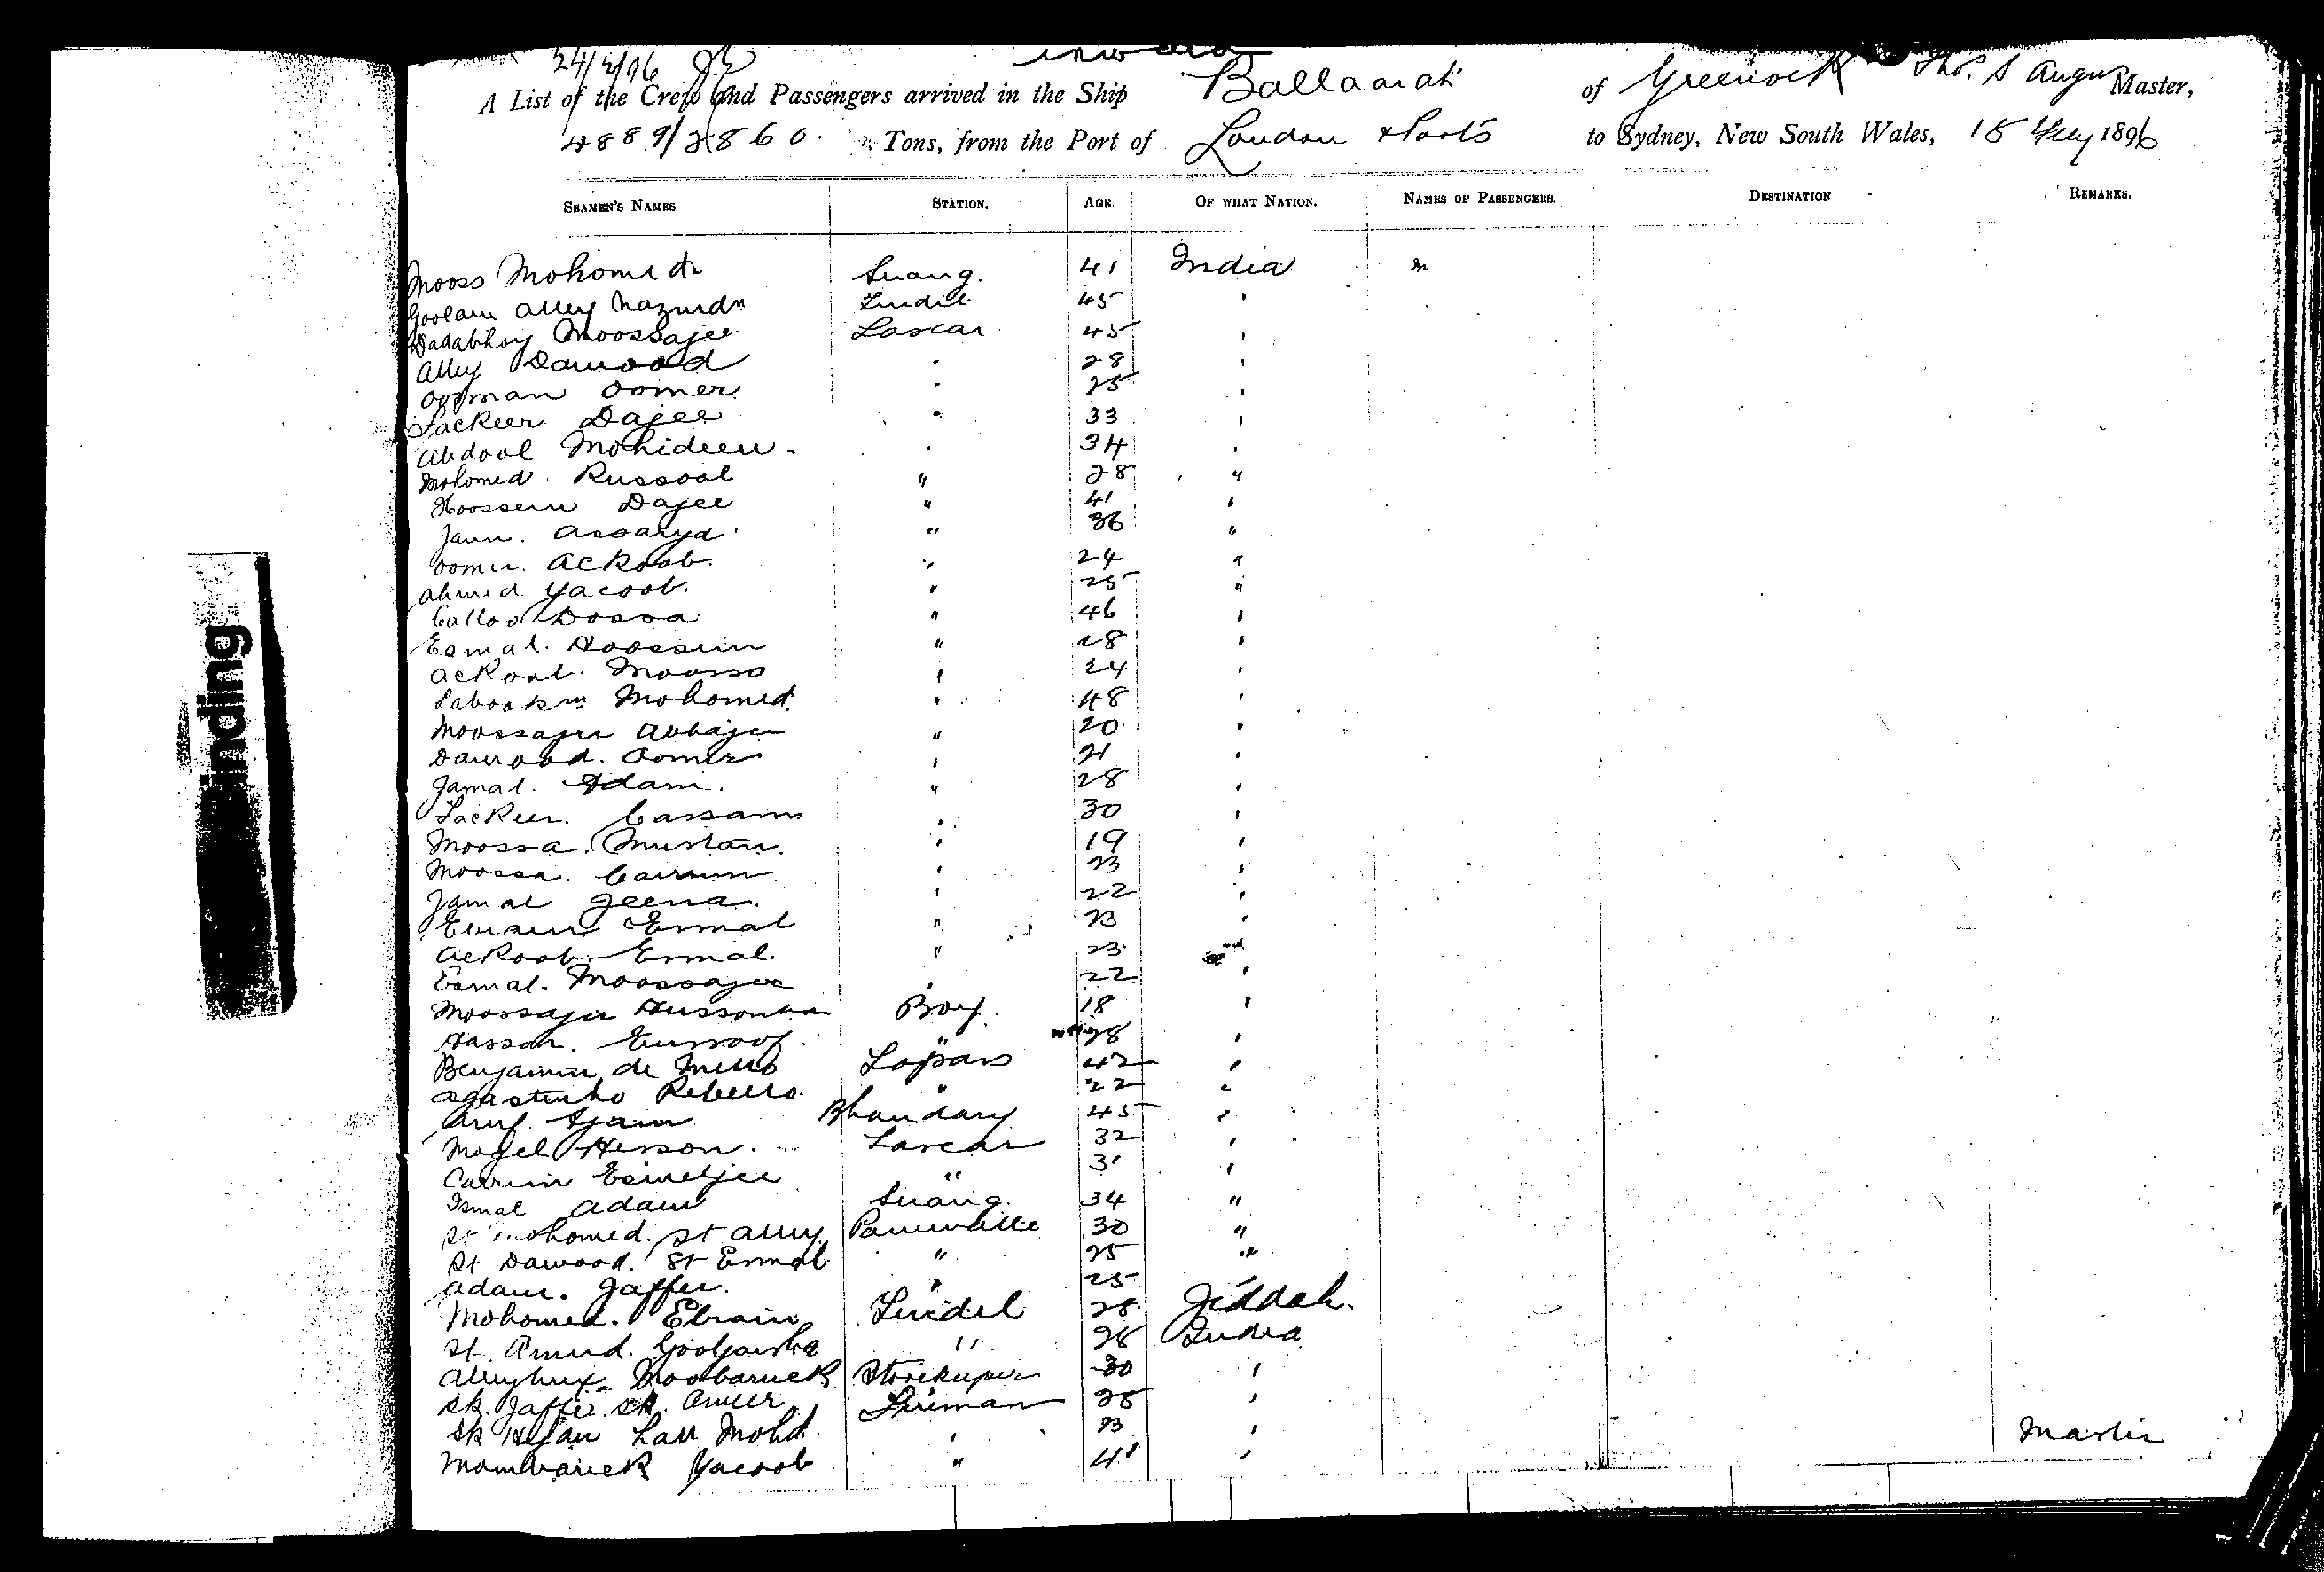 inward
24/2/96
A List of the Crew and Passengers arrived in the Ship Ballaarat of Greenock Thos. S Angus Master,
4889/2860. Tons, from the Port of London & Ports to Sydney, New South Wales, 18 Feby 1896
SEAMEN'S NAMES STATION. AGE. OF WHAT NATION. NAMES OF PASSENGERS. DESTINATION REMARKS.
Mooss Mohomed Suang. 41 India
Goolam Alley 45 "
Dadabhoy Moossajee Lascar 45 "
Alley Dawood " 28 "
Oosman Oomer " 25 "
Fackeer Dajee " 33 "
Abdool Mohideen " 34 "
Mohomed Russool " 28 "
Hoossein Dajee " 41 "
Jaun. Assarya " 36 "
Oomer. Ackoob " 24 "
Ahmed Yacoob. " 25 "
Calloo Dossa " 46 "
Esmal. Hoossein " 28 "
Ackoob. Moossa " 24 "
Mohomed " 48 "
Moossajee Abbajee " 20 "
Dawood. Oomer " 21 "
Jamal. Adam. " 28 "
Fackeer. Cassam " 30 "
Moossa. Mustan. " 19 "
Moossa. Carrim " 23 "
Jamal Jeena. " 22 "
Esmal " 23 "
Ackoob. Esmal. " 23 "
Esmal. Moossajee " 22 "
Moossajee Boy. 18 "
Hassan. Eussoof. " 28 "
Benjamin de Mello Topass 42 "
Agastinho Rebello. " 22 "
Bhandary 45 "
Lascar 32 "
Carrim Esmeljee " 31 "
Ismal Adam Suang. 34 "
St Mohomed. St Alley Paniwalla 30 "
St Dawood. St Esmal " 25 "
Adam. Jaffer. " 25 "
Mohomed. Ebraim Tindel 28 Jiddah.
St. " 28 India
Alleybux Moobaruck Storekeeper 30 "
Sk. Jaffer. Sk. Ameer Fireman 28 "
Sk Lall Mohd. " 23 "
Mombarick Yacoob " 41 "
inding